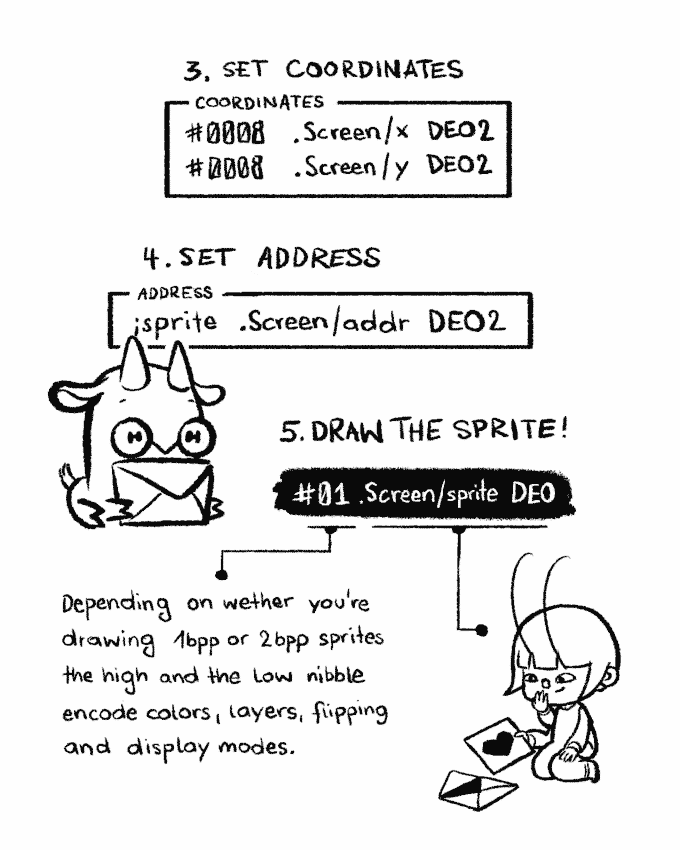 3. SET COORDINATES
COORDINATES
#0008 .Screen/x DEO2
#0008 .Screen/y DEO2
4. SET ADDRESS
ADDRESS
;sprite .Screen/addr DEO2
5. DRAW THE SPRITE!
#01 .Screen/sprite DEO
Depending on wether you're
drawing 1bpp or 2bpp sprites
the high and the low nibble
encode colors, layers, flipping
and display modes.